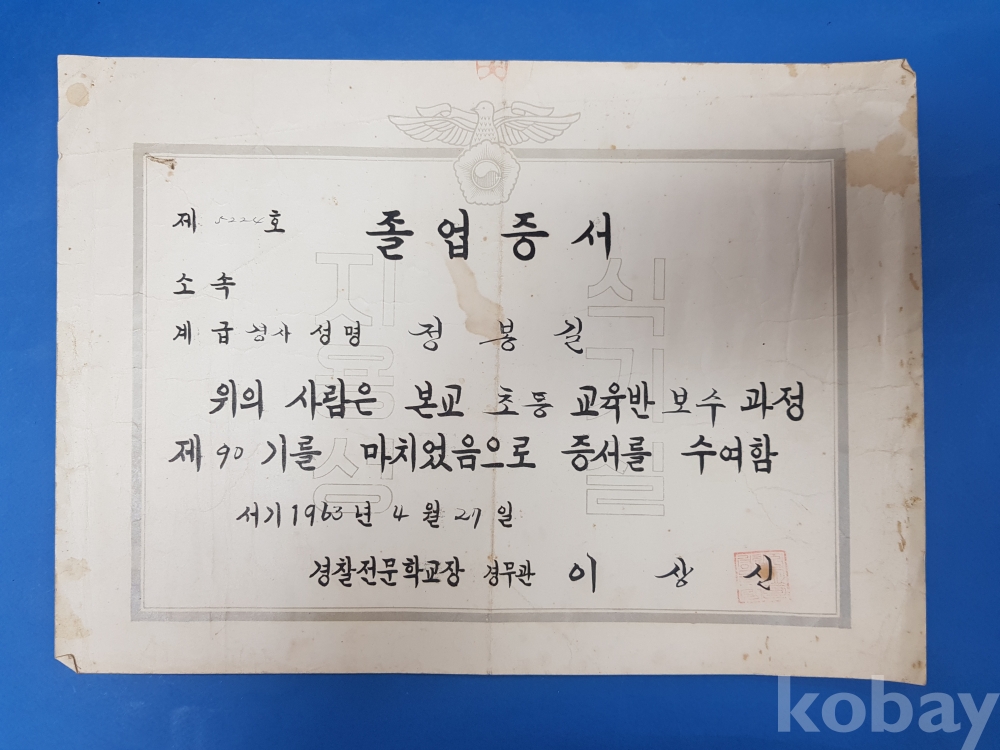 졸업증서
제 5224 호
소속
계급 경사 성명 정봉길
위의 사람은 본교 초등 교육반 보수 과정
제 90 기를 마치었음으로 증서를 수여함
서기 1963년 4월 27일
경찰전문학교장 경무관 이상신
지 식
용 기
상 실
kobay